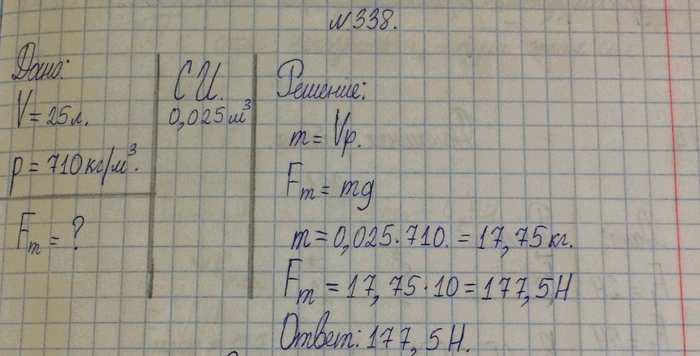 №338.
Дано:
V=25л.
p=710кг/м³.
Fт=?
СИ.
0,025м³
Решение:
m=Vp.
Fт=mg
m=0,025·710.=17,75кг.
Fт=17,75·10=177,5Н
Ответ: 177,5Н.